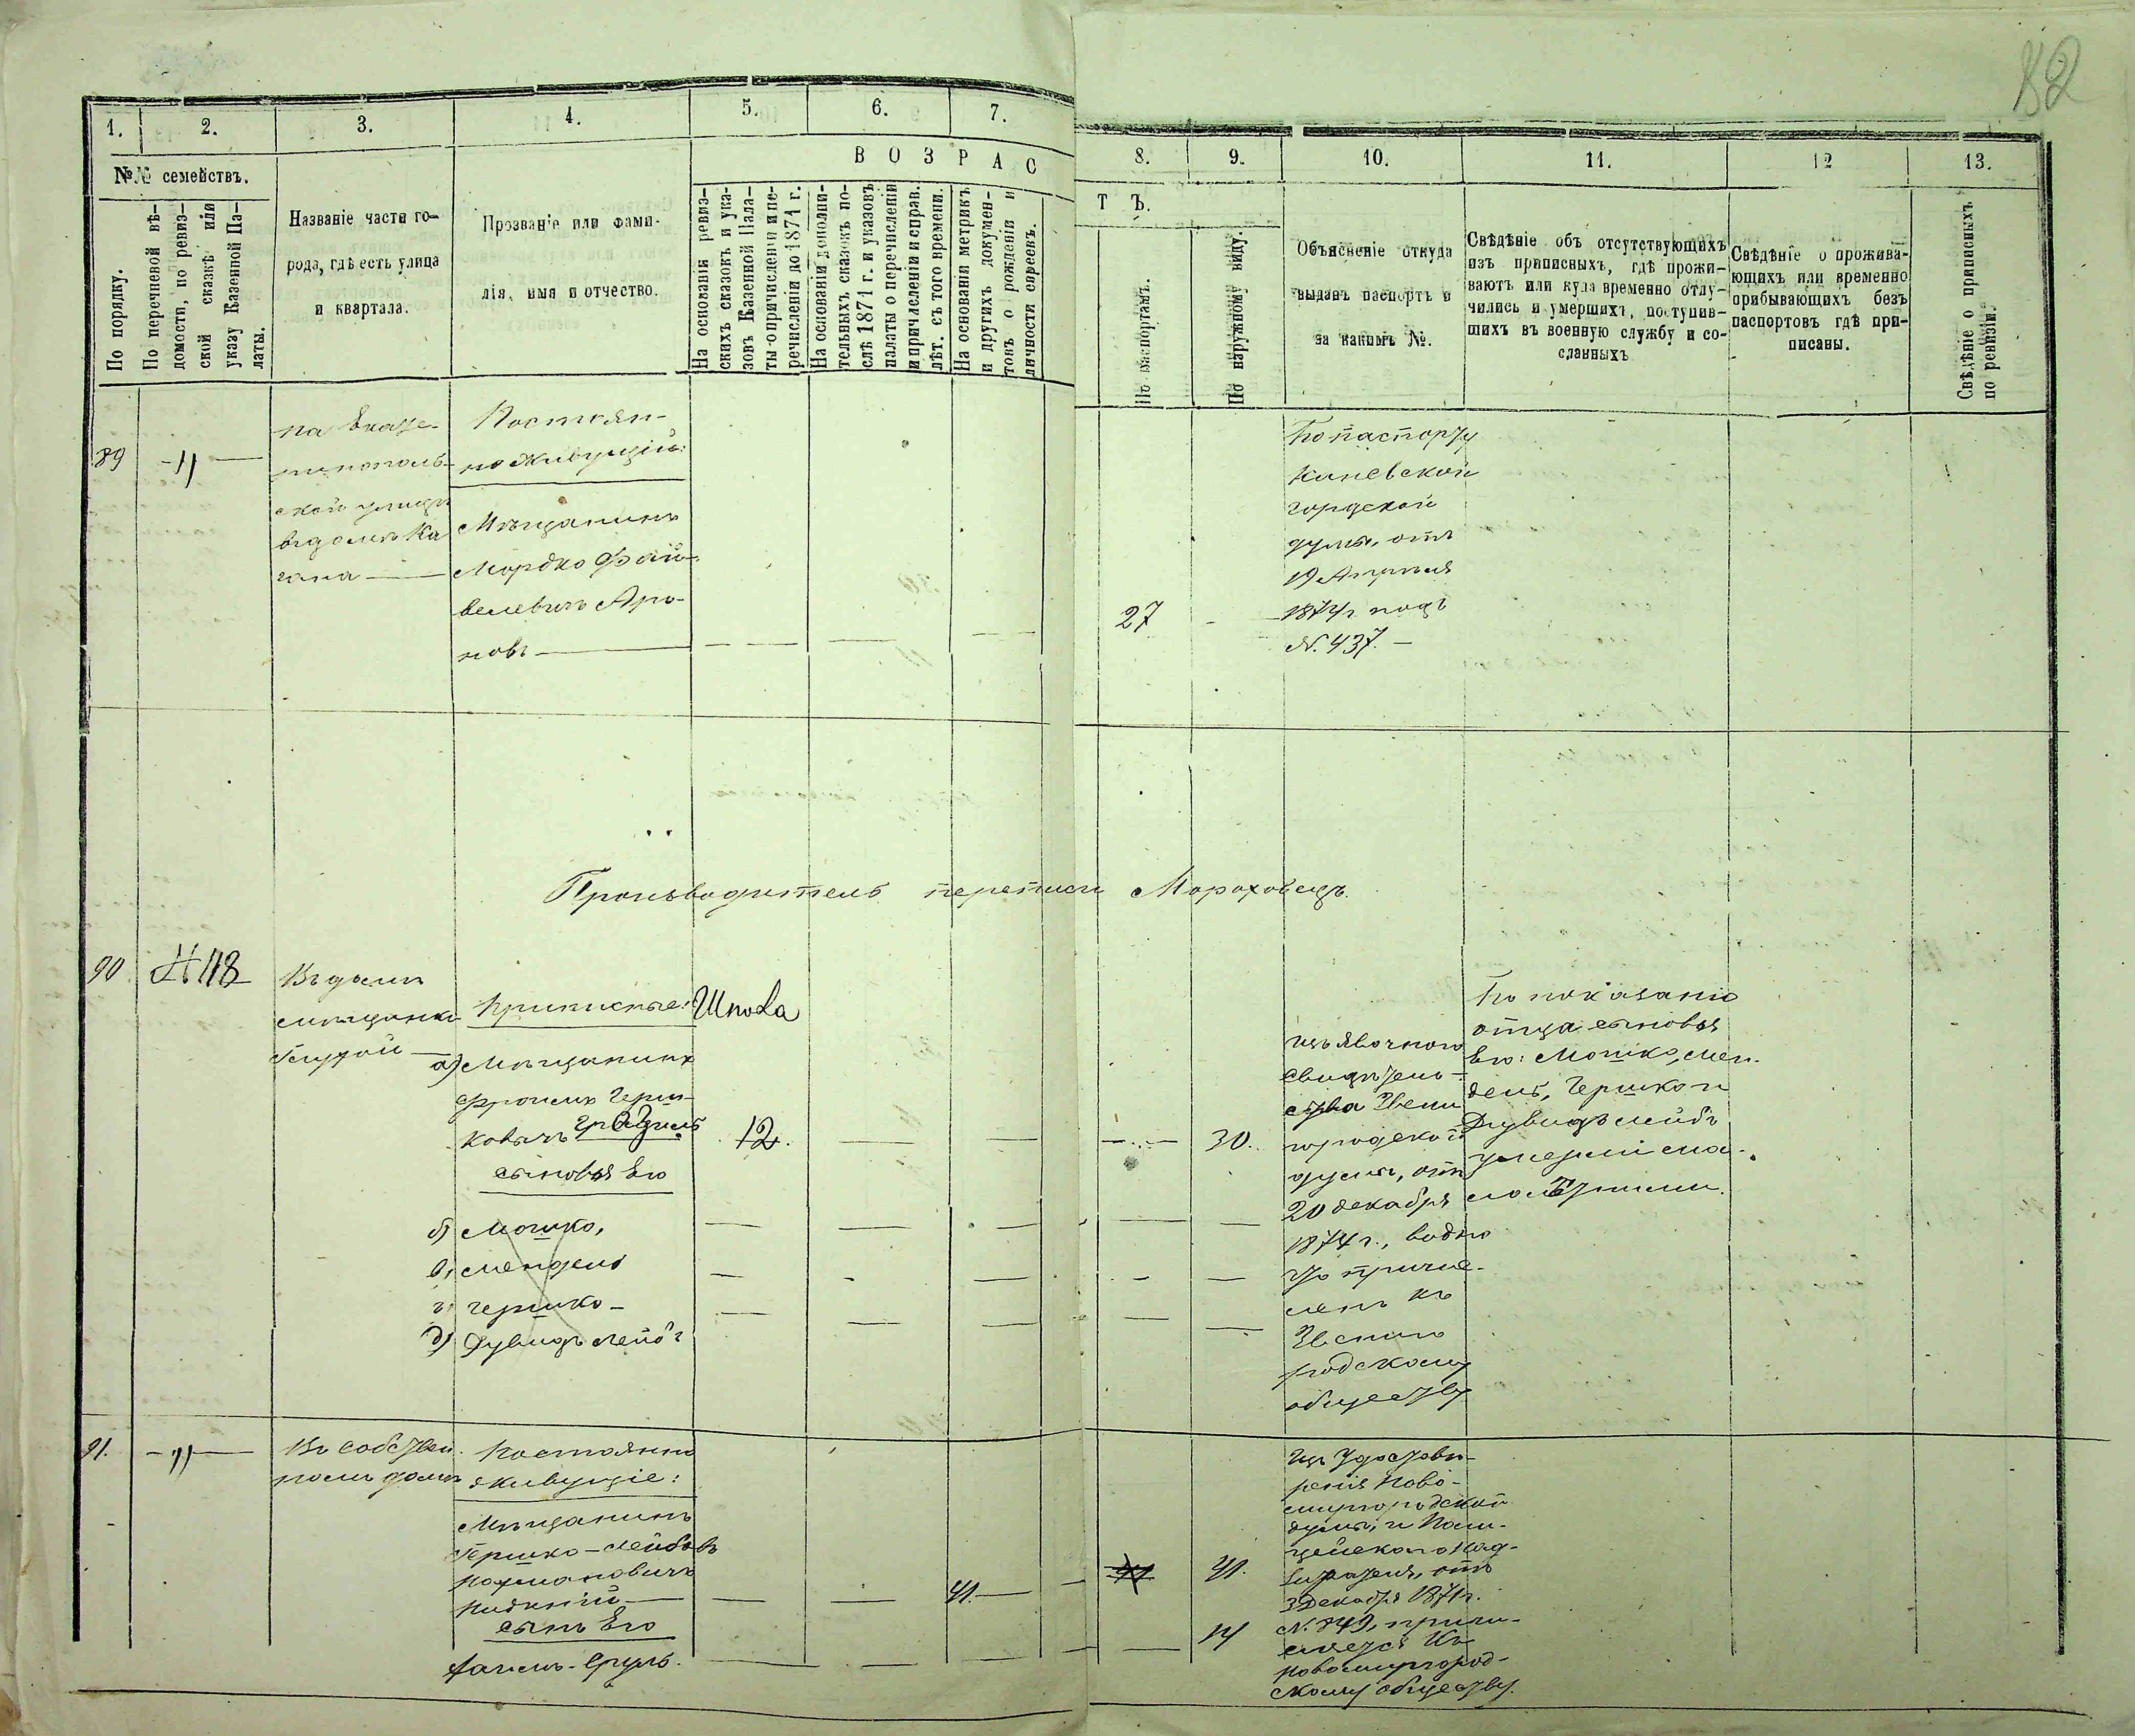 82
1.
2.
3.
4.
5.
6.
7.
8.
9.
10.
11.
12
13.
№№ семействъ.
По порядку.
По перечневой вѣ-
домости, по ревиз-
ской сказкѣ или
указу Казенной Па-
латы.
Названіе части го-
рода, гдѣ есть улица
и квартала.
Прозваніе или фами-
лія, имя и отчество.
ВОЗРАСТЪ.
На основаніи ревиз-
скихъ сказокъ и ука-
зовъ Казенной Пала-
ты о причисленіи и пе-
речисленіи до 1871 г.
На основаніи дополни-
тельныхъ сказокъ по-
слѣ 1871 г. и указовъ
палаты о перечисленіи
и причисленіи и справ.
лѣт. съ того времени.
На основаніи метрикъ
и другихъ докумен-
товъ о рожденіи и
личности евреевъ.
По паспортамъ.
По наружному виду.
Объясненіе откуда
выданъ паспортъ и
за какимъ №.
Свѣдѣніе объ отсутствующихъ
изъ приписныхъ, гдѣ прожи-
ваютъ или куда временно отлу-
чились и умершихъ, поступив-
шихъ въ военную службу и со-
сланныхъ
Свѣдѣніе о прожива-
ющихъ или временно
прибывающихъ безъ
паспортовъ гдѣ при-
писаны.
Свѣдѣніе о приписныхъ
по ревизіи.
89
-"-
на Екате-
ринополь-
ской улицѣ
въ домѣ Ка
гана
Постоян-
но живущій:
Мѣщанинъ
Мордко Фай-
велевичъ Аро-
новъ
27
По паспорту
Каневской
городской
думы, отъ
19 Апрѣля
1874 г. подъ
№. 437.
Производитель переписи Мороховецъ.
90
№ 118
Въ домѣ
мѣщанки
Приписные:
Шпола
а) Мѣщанинъ
Фроимъ Герш-
ковичъ
12.
30.
сыновья Его
б) Мошко,
в) Мендель
г) Гершко
д) Дувидъ Лейбъ
изъ явочного
свидѣтель-
ства Звени
городской
думы, отъ
20 декабря
1874 г., видно
что причи-
ленъ къ
Звениго
родскому
обществу
По показанію
отца сыновья
Его: Мошко, Мен-
дель, Гершко и
Дувидъ Лейбъ
умерли ма-
лолѣтними.
91.
-"-
Въ собствен.
номъ домѣ
Постоянно
живущіе:
Мѣщанинъ
Гершко-Лейбовъ
Нахмановичъ
сынъ Его
41.
41
41.
14
Изъ Удостовѣ-
ренія Ново-
миргородской
думы, и Поли-
цейскаго Над-
зирателя, отъ
3 Декабря 1871 г.
№. 849, причи-
сляется къ
Новомиргород-
скому обществу.